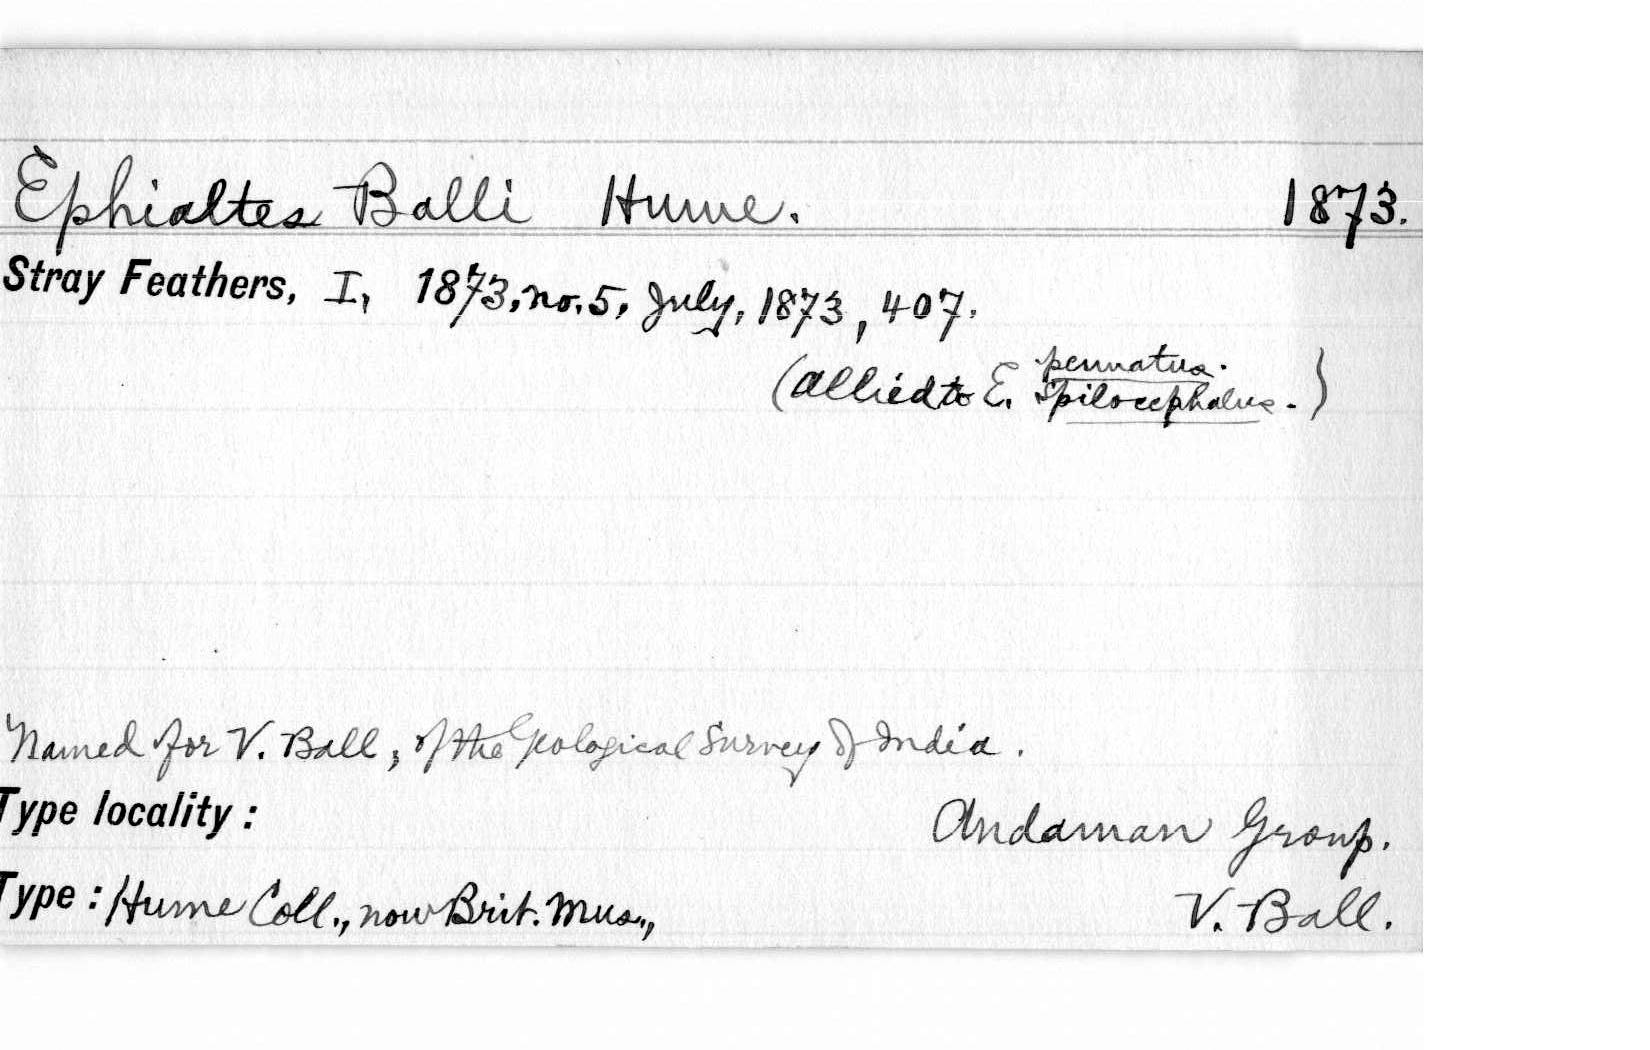 Ephialtes Balli Hume. 1873.
Stray Feathers, I, 1873, no. 5, July, 1873, 407.
pennatus.
(allied to E. Spilocephalus. )
Named for V. Ball, of the Geological Survey of India.
Type locality: Andaman Group.
Type: Hume Coll., now Brit. Mus., V. Ball.